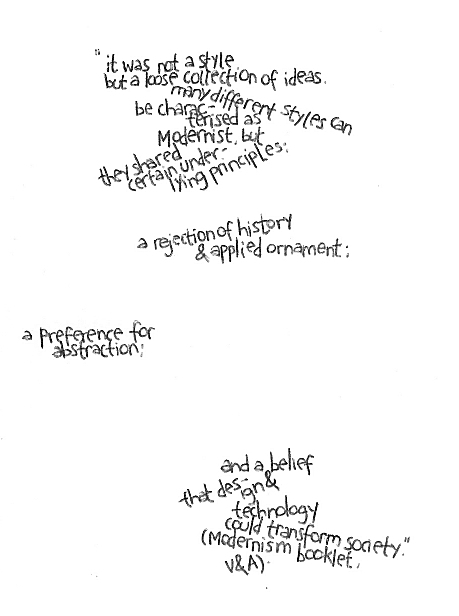 "it was not a style
but a loose collection of ideas.
many different styles can
be charac-
terised as
Modernist, but
they shared
certain under-
lying principles:
a rejection of history
& applied ornament;
a preference for
abstraction;
and a belief
that des-
ign &
technology
could transform society."
(Modernism booklet,
V&A).